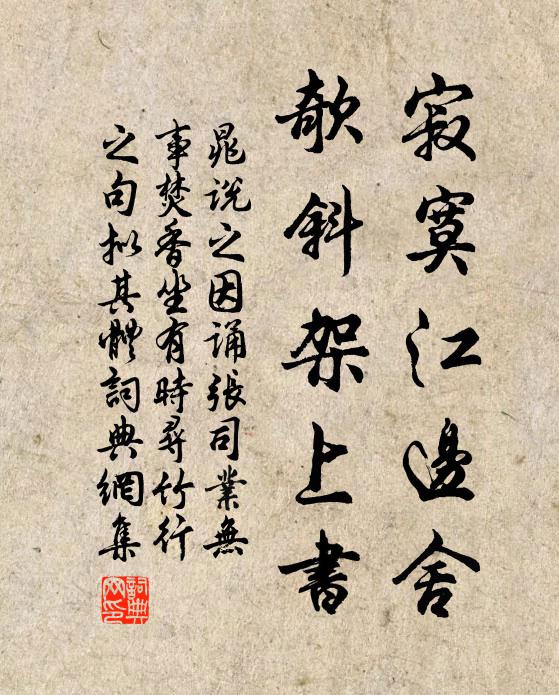 寂寞江邊舍
欹斜架上書
晁説之因誦張司業無
事焚香坐有時尋竹行
之句擬其體詞典網集
詞典
网印